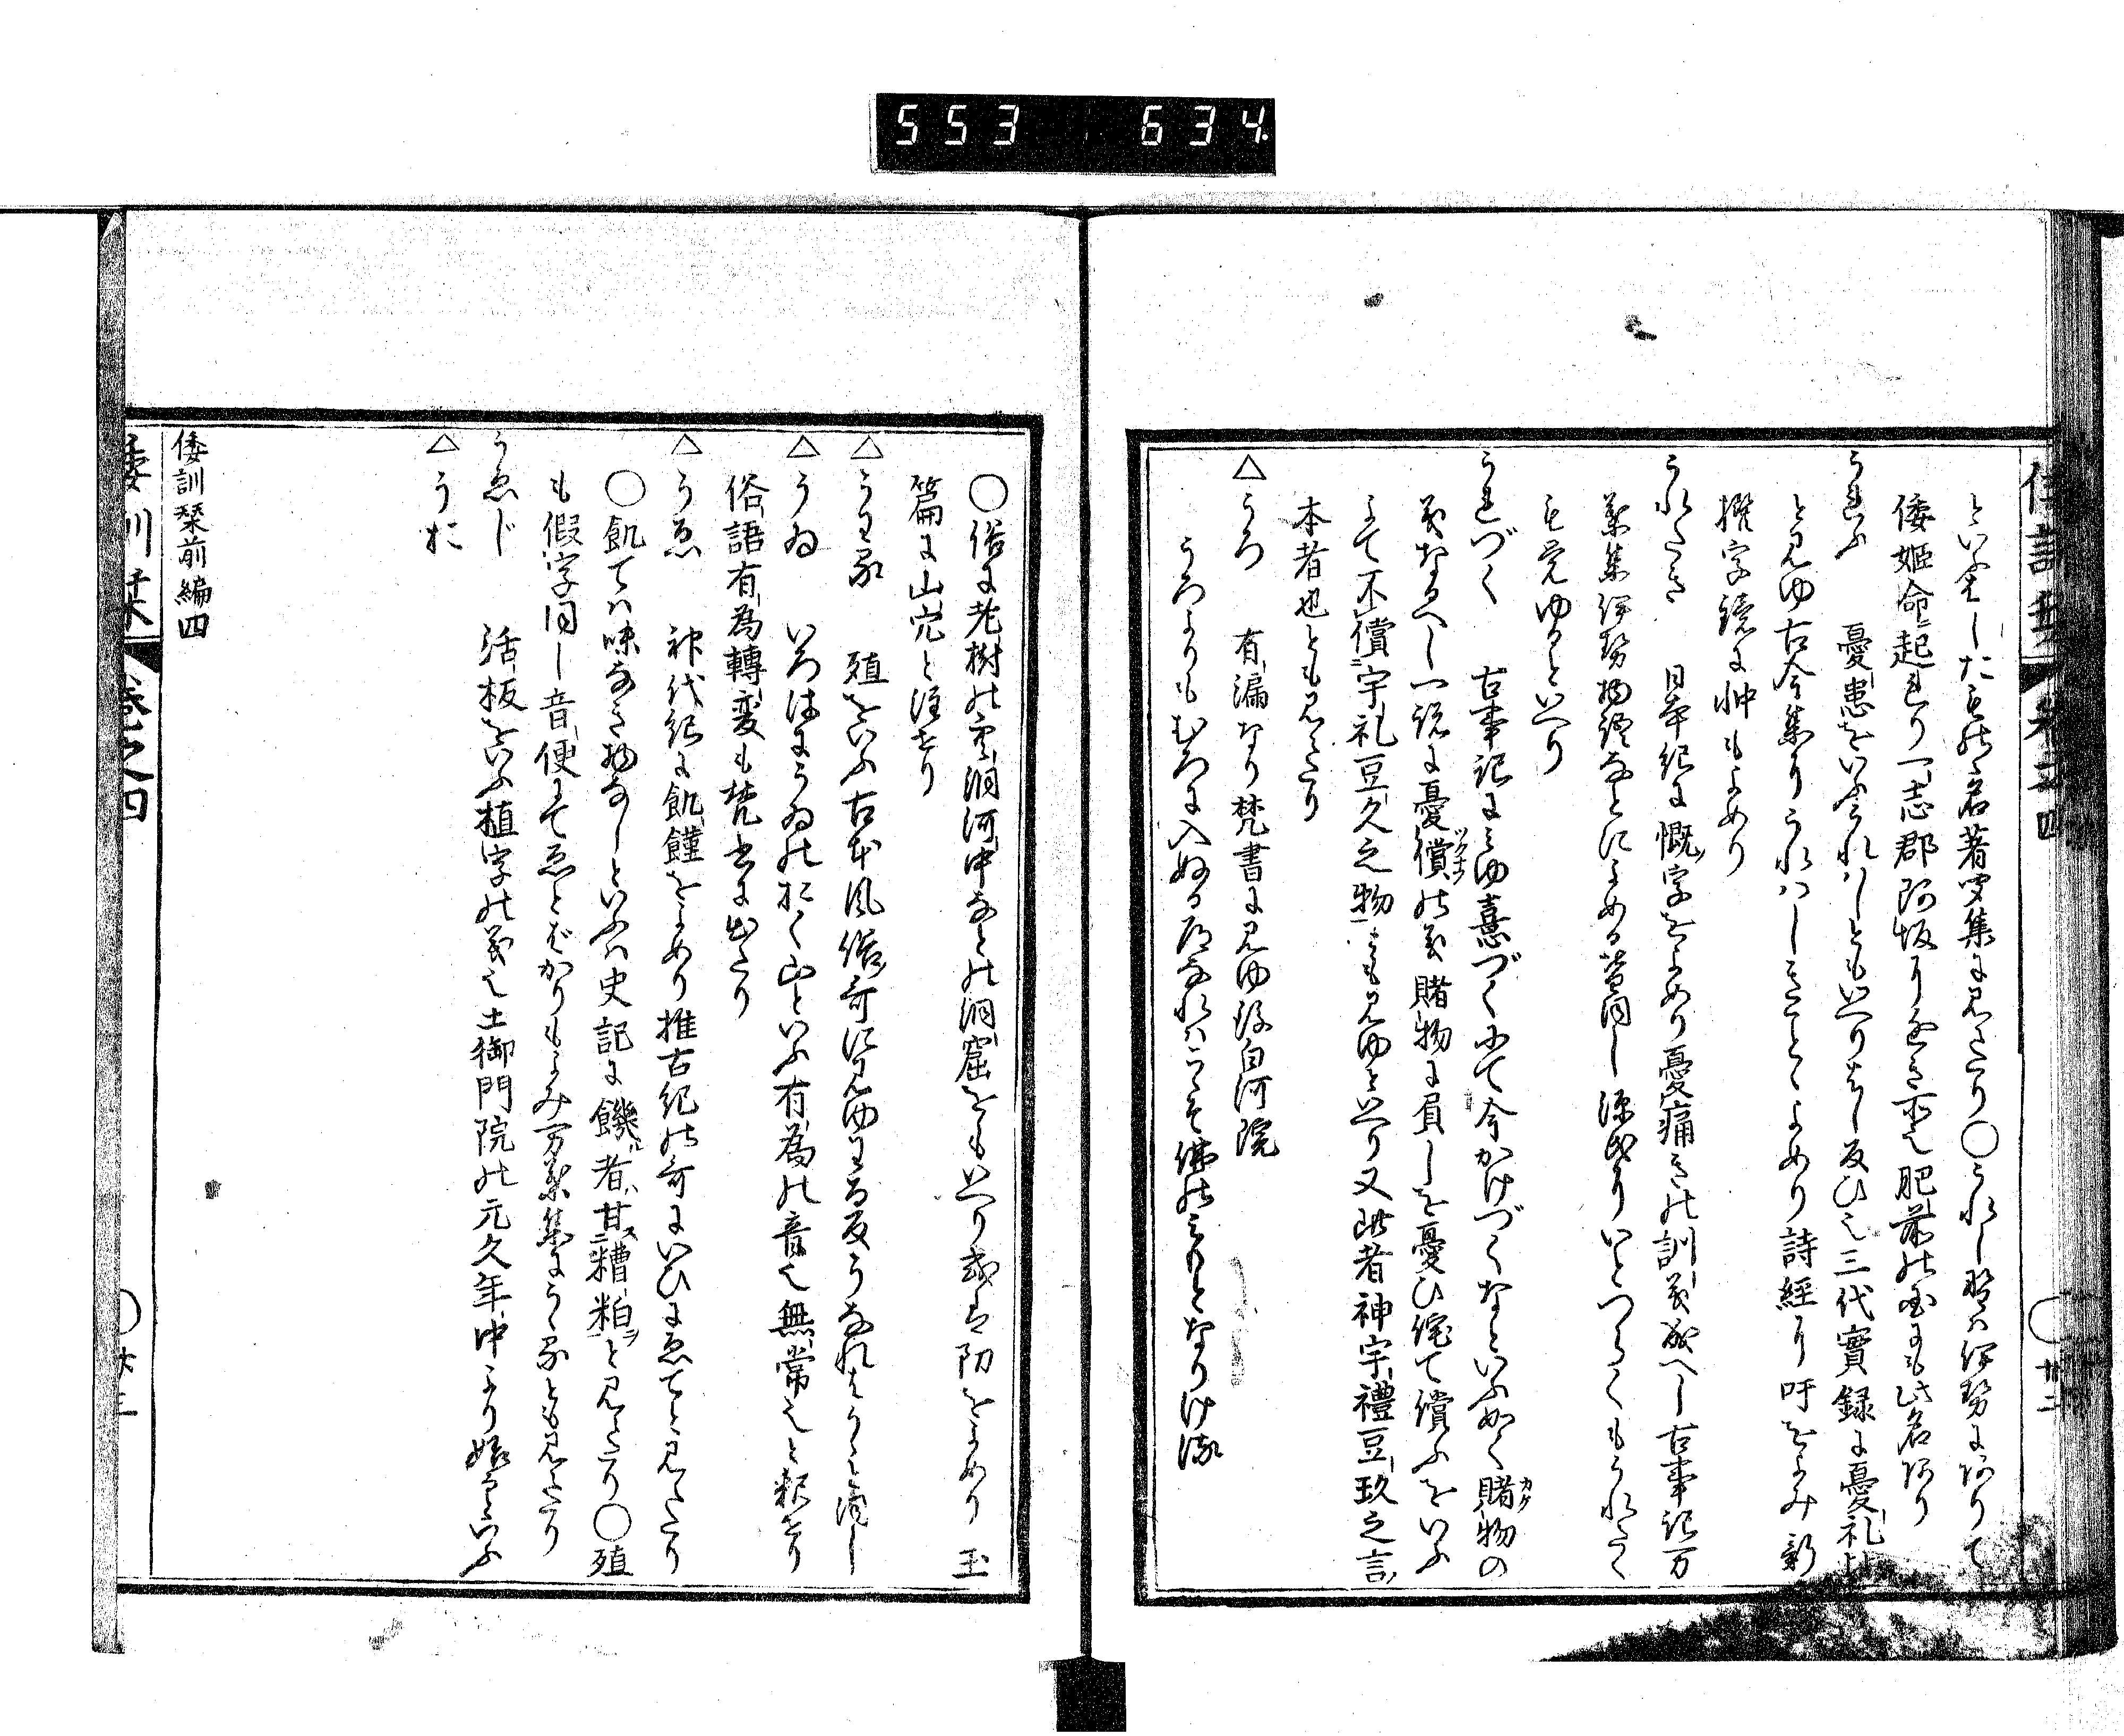 553 634
といふよしたもの名著聞集に見えたり〇うれし野は伊勢にありて
倭姫命に起れり一志郡阿坂のちかき所也肥前の国にも此名あり
うれふ 憂患をいふうれはしともいへりれし反ひ也三代實録に憂礼比
と見ゆ古今集にうれはしきことゝよめり詩経に吁をよみ新
撰字鏡に忡もよめり
うれたき 日本紀に慨字をよめり憂痛きの訓義成へし古事記万
葉集伊勢物語なとによめる皆同し源氏にいとつらくもうれたく
も覚ゆるといへり
うれづく 古事記にみゆ憙づくにて今かけづくなといふ如く賭物の
義なるへし一説に憂償の義賭物に負しを憂ひ侘て償ふをいふ
よて不償宇礼豆久之物とも見ゆといへり又此者神宇禮豆玖之言
本者也とも見えたり
△うろ 有漏なり梵書に見ゆ後白河院
うろよりもむろに入ぬる道なれはこそ佛のみもとなりける
〇俗に老樹の空洞河中なとの洞窟をもいへり或は防をよめり 玉
篇に山穴と注せり
△うわる 殖をいふ古本風俗哥に見ゆわる反うなれはうゝと同し
△うゐ いろはにうゐのおく山といふ有為の音也無常也と釈せり
俗語有為轉変も梵書に出たり
△うゑ 神代紀に飢饉をよめり推古紀の哥にいひにゑてと見えたり
〇飢ては味なき物なしといふは史記に饑者甘糟粕と見えたり〇殖
も假字同し音便にてゑとばかりもよみ万葉集にうゝるとも見えたり
うゑじ 活板をいふ植字の義也土御門院の元久年中より始るといふ
△うお
倭訓栞前編四
倭訓栞 巻之四